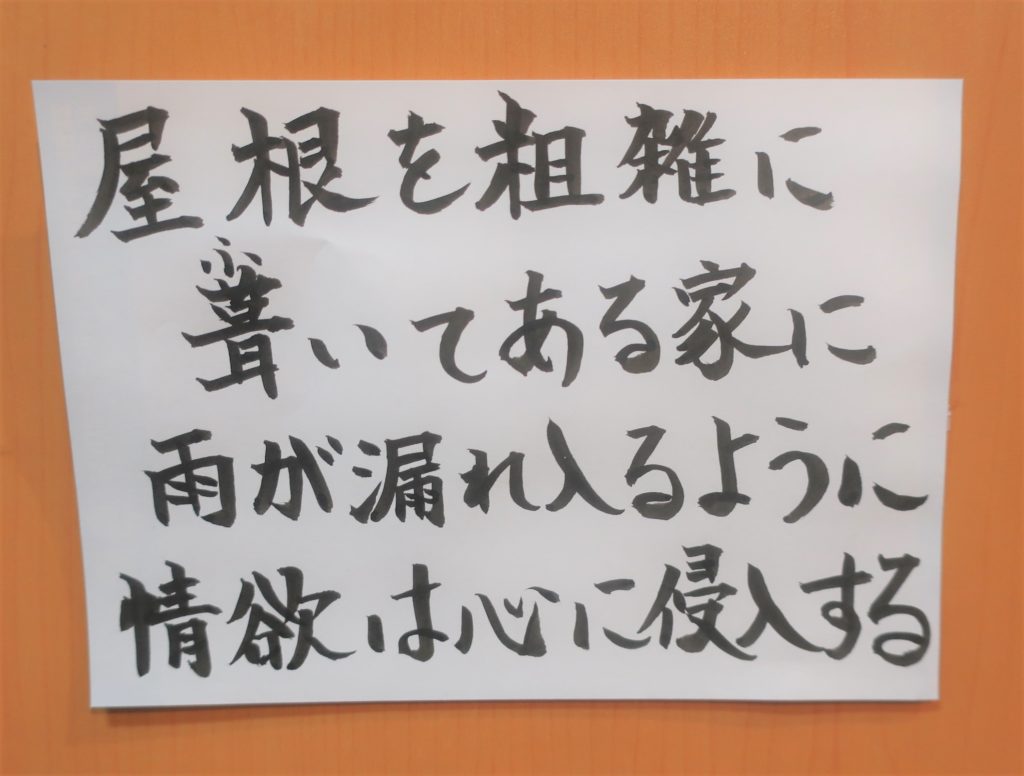 屋根を粗雑に
ふ
葺いてある家に
雨が漏れ入るように
情欲は心に侵入する